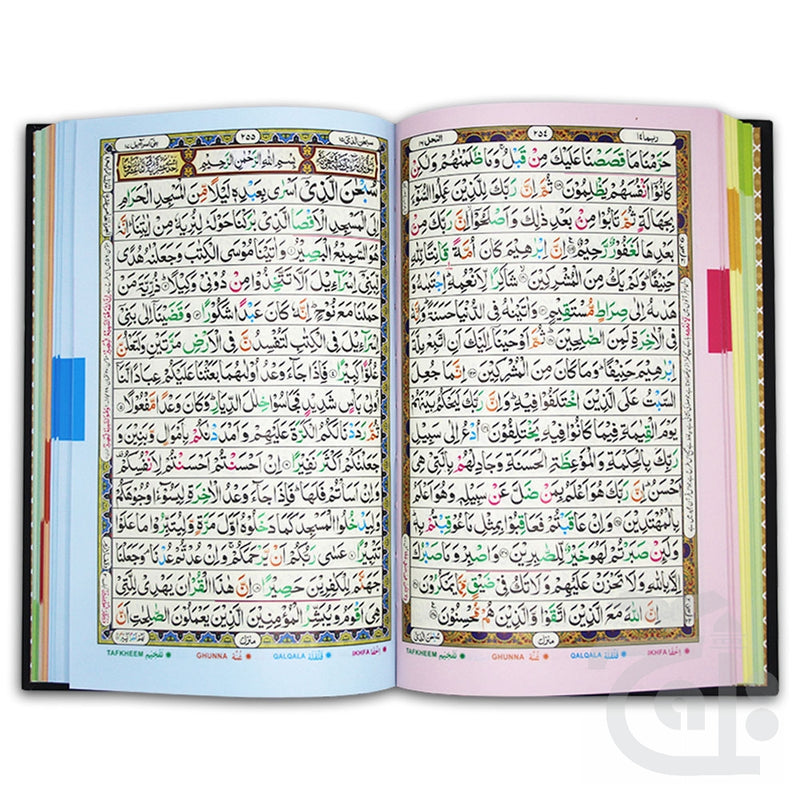 ربما ١٤ ٢٥٤ النحل ١٦
حَرَّمْنَا مَا قَصَصْنَا عَلَيْكَ مِنْ قَبْلُ ۚ وَمَا ظَلَمْنٰهُمْ وَلٰكِنْ
كَانُوْۤا اَنْفُسَهُمْ يَظْلِمُوْنَ ۝ ثُمَّ اِنَّ رَبَّكَ لِلَّذِيْنَ عَمِلُوا السُّوْٓءَ
بِجَهَالَةٍ ثُمَّ تَابُوْا مِنْۢ بَعْدِ ذٰلِكَ وَاَصْلَحُوْۤا اِنَّ رَبَّكَ مِنْۢ
بَعْدِهَا لَغَفُوْرٌ رَّحِيْمٌ ۝ اِنَّ اِبْرٰهِيْمَ كَانَ اُمَّةً قَانِتًا لِّلّٰهِ
حَنِيْفًا ؕ وَلَمْ يَكُ مِنَ الْمُشْرِكِيْنَ ۝ شَاكِرًا لِّاَنْعُمِهٖ ؕ اِجْتَبٰىهُ وَ
هَدٰىهُ اِلٰى صِرَاطٍ مُّسْتَقِيْمٍ ۝ وَاٰتَيْنٰهُ فِى الدُّنْيَا حَسَنَةً ؕ وَاِنَّهٗ
فِى الْاٰخِرَةِ لَمِنَ الصّٰلِحِيْنَ ۝ ثُمَّ اَوْحَيْنَاۤ اِلَيْكَ اَنِ اتَّبِعْ مِلَّةَ
اِبْرٰهِيْمَ حَنِيْفًا ؕ وَمَا كَانَ مِنَ الْمُشْرِكِيْنَ ۝ اِنَّمَا جُعِلَ
السَّبْتُ عَلَى الَّذِيْنَ اخْتَلَفُوْا فِيْهِ ؕ وَاِنَّ رَبَّكَ لَيَحْكُمُ بَيْنَهُمْ
يَوْمَ الْقِيٰمَةِ فِيْمَا كَانُوْا فِيْهِ يَخْتَلِفُوْنَ ۝ اُدْعُ اِلٰى سَبِيْلِ
رَبِّكَ بِالْحِكْمَةِ وَالْمَوْعِظَةِ الْحَسَنَةِ وَجَادِلْهُمْ بِالَّتِيْ هِيَ
اَحْسَنُ ؕ اِنَّ رَبَّكَ هُوَ اَعْلَمُ بِمَنْ ضَلَّ عَنْ سَبِيْلِهٖ وَهُوَ اَعْلَمُ
بِالْمُهْتَدِيْنَ ۝ وَاِنْ عَاقَبْتُمْ فَعَاقِبُوْا بِمِثْلِ مَا عُوْقِبْتُمْ بِهٖ ؕ
وَلَئِنْ صَبَرْتُمْ لَهُوَ خَيْرٌ لِّلصّٰبِرِيْنَ ۝ وَاصْبِرْ وَمَا صَبْرُكَ
اِلَّا بِاللّٰهِ وَلَا تَحْزَنْ عَلَيْهِمْ وَلَا تَكُ فِيْ ضَيْقٍ مِّمَّا يَمْكُرُوْنَ ۝
اِنَّ اللّٰهَ مَعَ الَّذِيْنَ اتَّقَوْا وَّالَّذِيْنَ هُمْ مُّحْسِنُوْنَ ۝
منزل ٣
TAFKHEEM تفخيم GHUNNA غنّه QALQALA قلقلة IKHFA اخفا
سبحن الذى ١٥ ٢٥٥ بنى اسرآءيل ١٧
بِسْمِ اللّٰهِ الرَّحْمٰنِ الرَّحِيْمِ
سُبْحٰنَ الَّذِيْۤ اَسْرٰى بِعَبْدِهٖ لَيْلًا مِّنَ الْمَسْجِدِ الْحَرَامِ
اِلَى الْمَسْجِدِ الْاَقْصَا الَّذِيْ بٰرَكْنَا حَوْلَهٗ لِنُرِيَهٗ مِنْ اٰيٰتِنَا ؕ اِنَّهٗ
هُوَ السَّمِيْعُ الْبَصِيْرُ ۝ وَاٰتَيْنَا مُوْسَى الْكِتٰبَ وَجَعَلْنٰهُ هُدًى
لِّبَنِيْۤ اِسْرَآءِيْلَ اَلَّا تَتَّخِذُوْا مِنْ دُوْنِيْ وَكِيْلًا ۝ ذُرِّيَّةَ مَنْ
حَمَلْنَا مَعَ نُوْحٍ ؕ اِنَّهٗ كَانَ عَبْدًا شَكُوْرًا ۝ وَقَضَيْنَاۤ اِلٰى بَنِيْۤ
اِسْرَآءِيْلَ فِى الْكِتٰبِ لَتُفْسِدُنَّ فِى الْاَرْضِ مَرَّتَيْنِ وَلَتَعْلُنَّ
عُلُوًّا كَبِيْرًا ۝ فَاِذَا جَآءَ وَعْدُ اُوْلٰىهُمَا بَعَثْنَا عَلَيْكُمْ عِبَادًا لَّنَاۤ
اُولِيْ بَاْسٍ شَدِيْدٍ فَجَاسُوْا خِلٰلَ الدِّيَارِ ؕ وَكَانَ وَعْدًا مَّفْعُوْلًا ۝
ثُمَّ رَدَدْنَا لَكُمُ الْكَرَّةَ عَلَيْهِمْ وَاَمْدَدْنٰكُمْ بِاَمْوَالٍ وَّبَنِيْنَ وَ
جَعَلْنٰكُمْ اَكْثَرَ نَفِيْرًا ۝ اِنْ اَحْسَنْتُمْ اَحْسَنْتُمْ لِاَنْفُسِكُمْ
وَاِنْ اَسَاْتُمْ فَلَهَا ؕ فَاِذَا جَآءَ وَعْدُ الْاٰخِرَةِ لِيَسُوْٓءٗا وُجُوْهَكُمْ
وَلِيَدْخُلُوا الْمَسْجِدَ كَمَا دَخَلُوْهُ اَوَّلَ مَرَّةٍ وَّلِيُتَبِّرُوْا مَا عَلَوْا
تَتْبِيْرًا ۝ عَسٰى رَبُّكُمْ اَنْ يَّرْحَمَكُمْ ۚ وَاِنْ عُدْتُّمْ عُدْنَا ۘ وَجَعَلْنَا
جَهَنَّمَ لِلْكٰفِرِيْنَ حَصِيْرًا ۝ اِنَّ هٰذَا الْقُرْاٰنَ يَهْدِيْ لِلَّتِيْ
هِيَ اَقْوَمُ وَيُبَشِّرُ الْمُؤْمِنِيْنَ الَّذِيْنَ يَعْمَلُوْنَ الصّٰلِحٰتِ اَنَّ
منزل ٤
TAFKHEEM تفخيم GHUNNA غنّه QALQALA قلقلة IKHFA اخفا